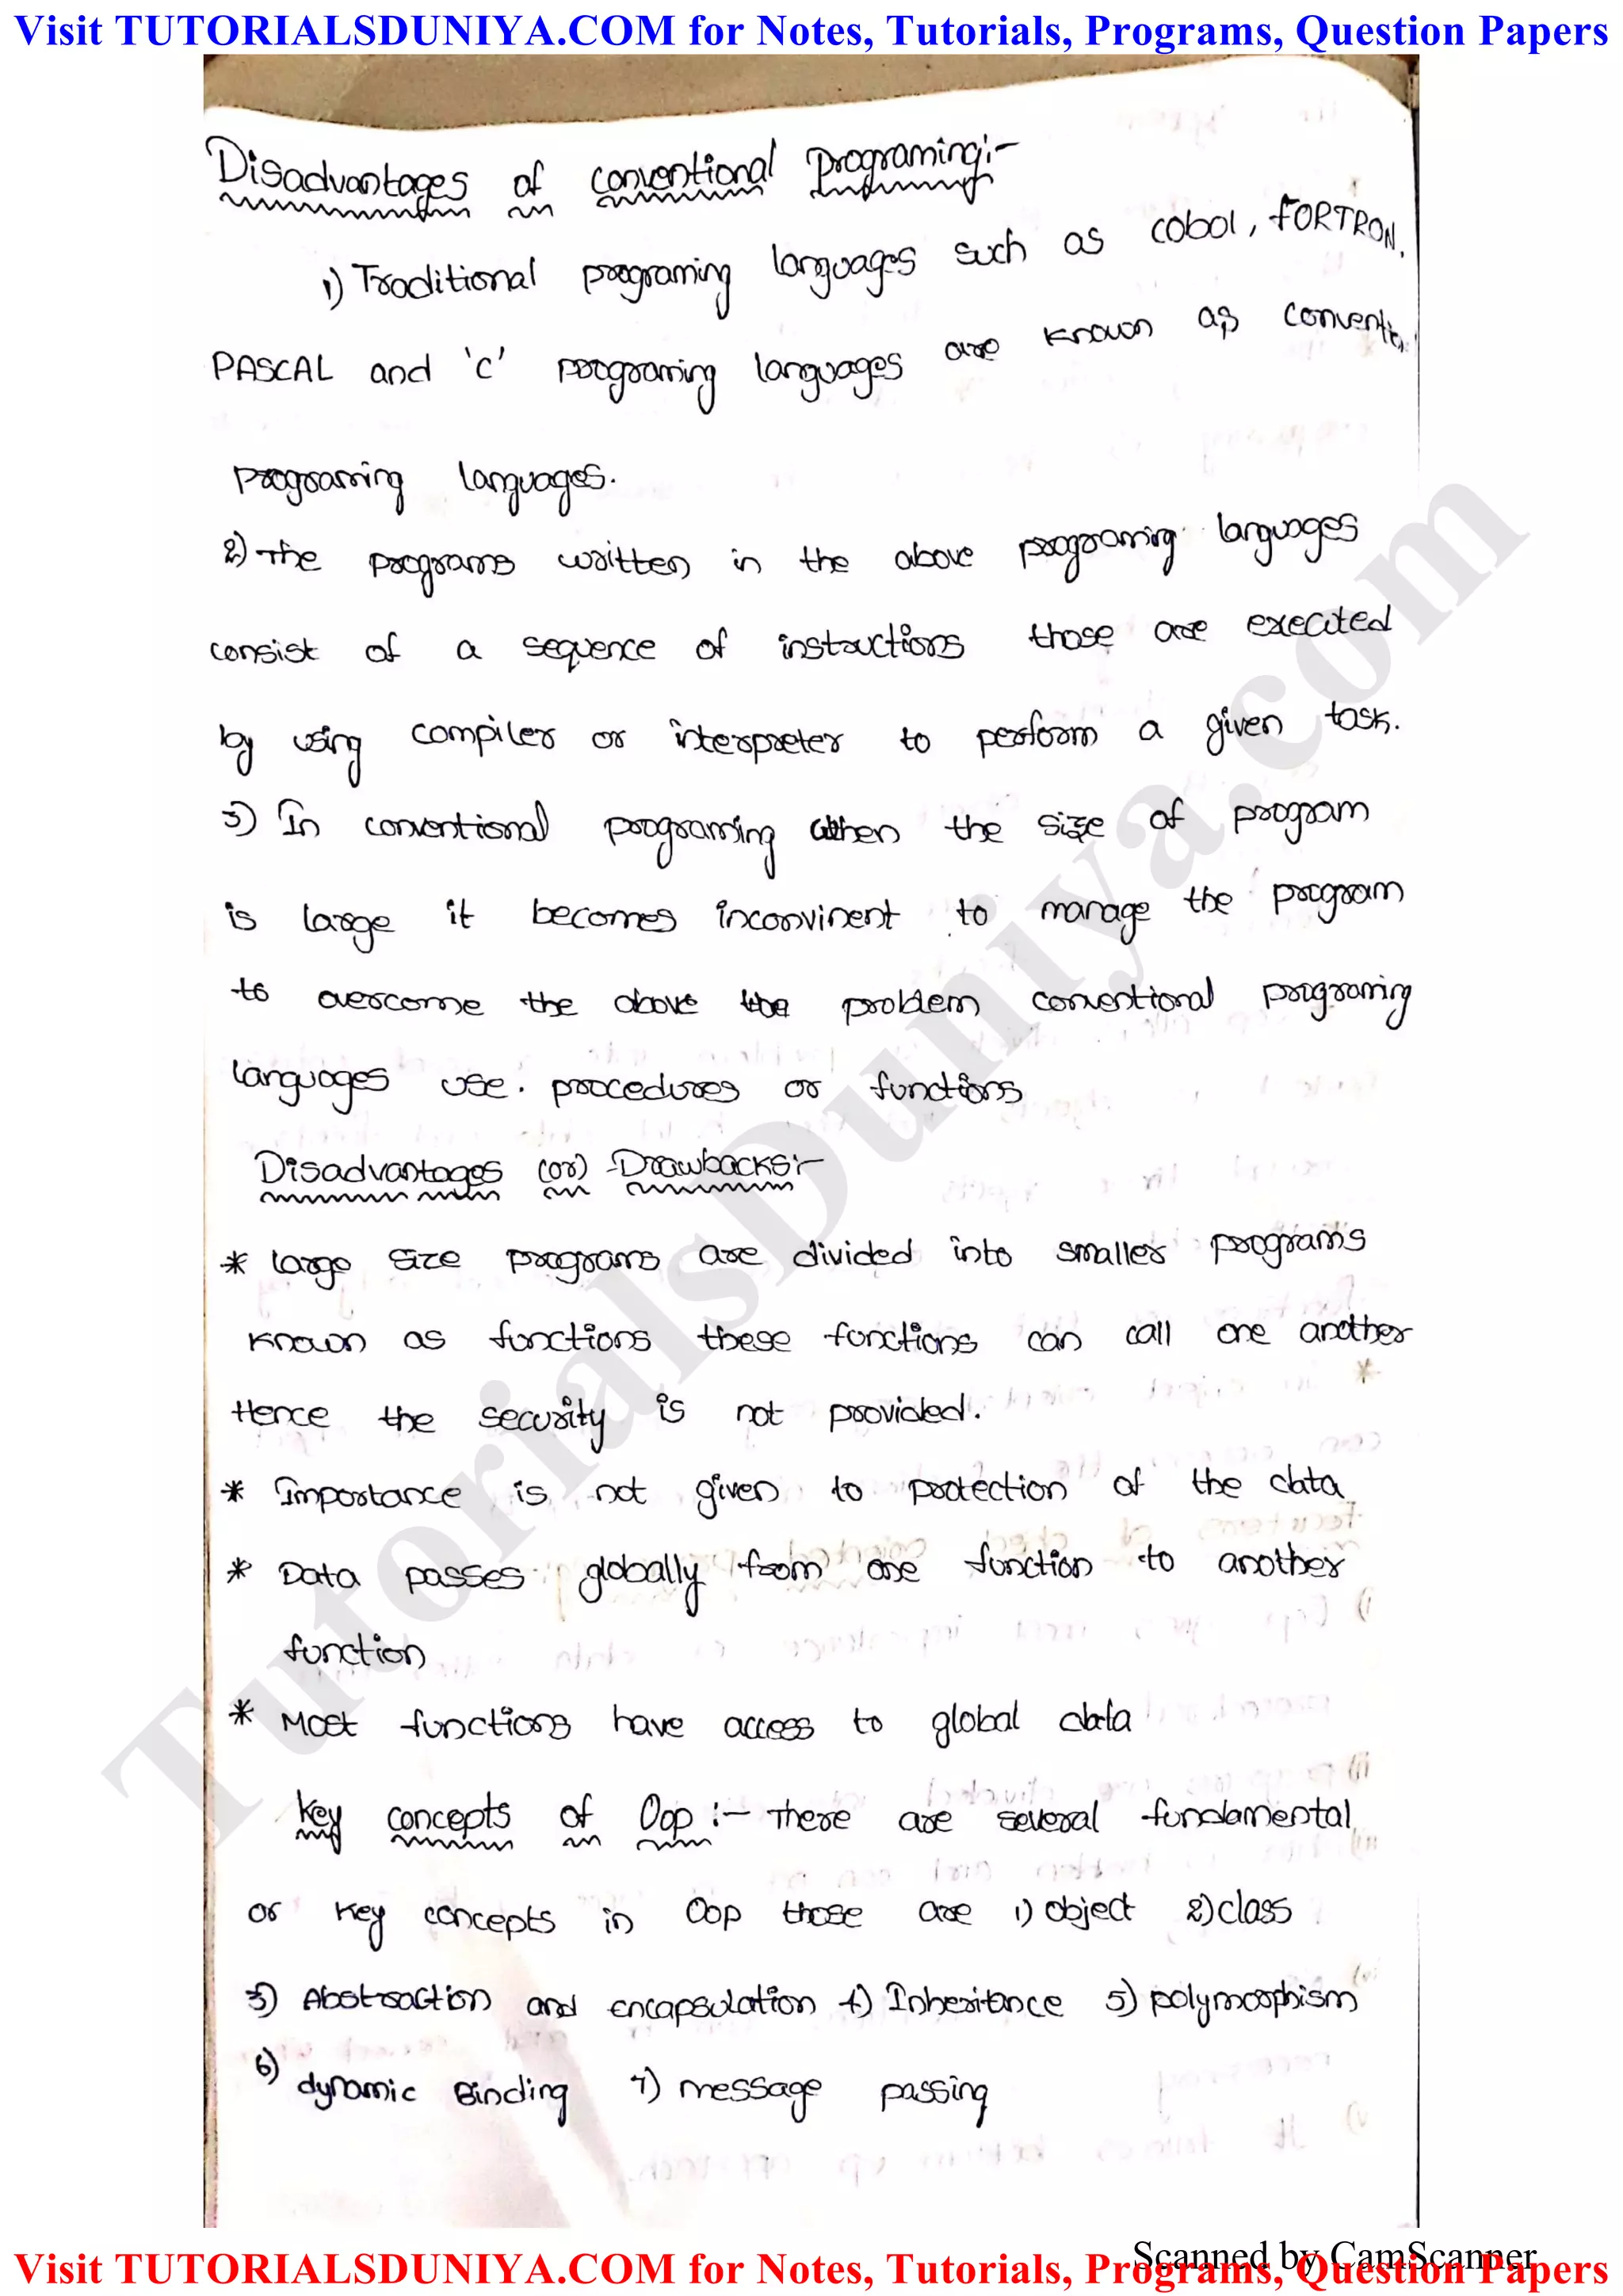 Visit TUTORIALSDUNIYA.COM for Notes, Tutorials, Programs, Question Papers
Disadvantages of conventional programing:-
1) Traditional programing languages such as cobol, FORTRON,
PASCAL and 'c' programing languages are known as
programing languages.
2) The programs written in the above programing languages
consist of a sequence of instructions those are executed
by using compiler or interpreter to perform a given task.
3) In conventional programing when the size of program
is large it becomes inconvinent to manage the program
to overcome the above the problem conventional programing
languages use. procedures or functions
Disadvantages (or) Drawbacks:-
* large size programs are divided into smaller programs
known as functions these functions can call one another
Hence the security is not provided.
* Importance is not given to protection of the data
* Data passes globally from one function to another
function
* Most functions have access to global data
Key concepts of Oop :- There are several fundamental
or key concepts in Oop those are 1) object 2) class
3) Abstraction and encapsulation 4) Inheritance 5) polymorphism
6) dynamic Binding 7) message passing
TutorialsDuniya.com
Scanned by CamScanner
Visit TUTORIALSDUNIYA.COM for Notes, Tutorials, Programs, Question Papers